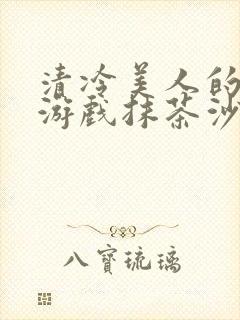 清冷美人的
游戏抹茶沙
八寶琉璃